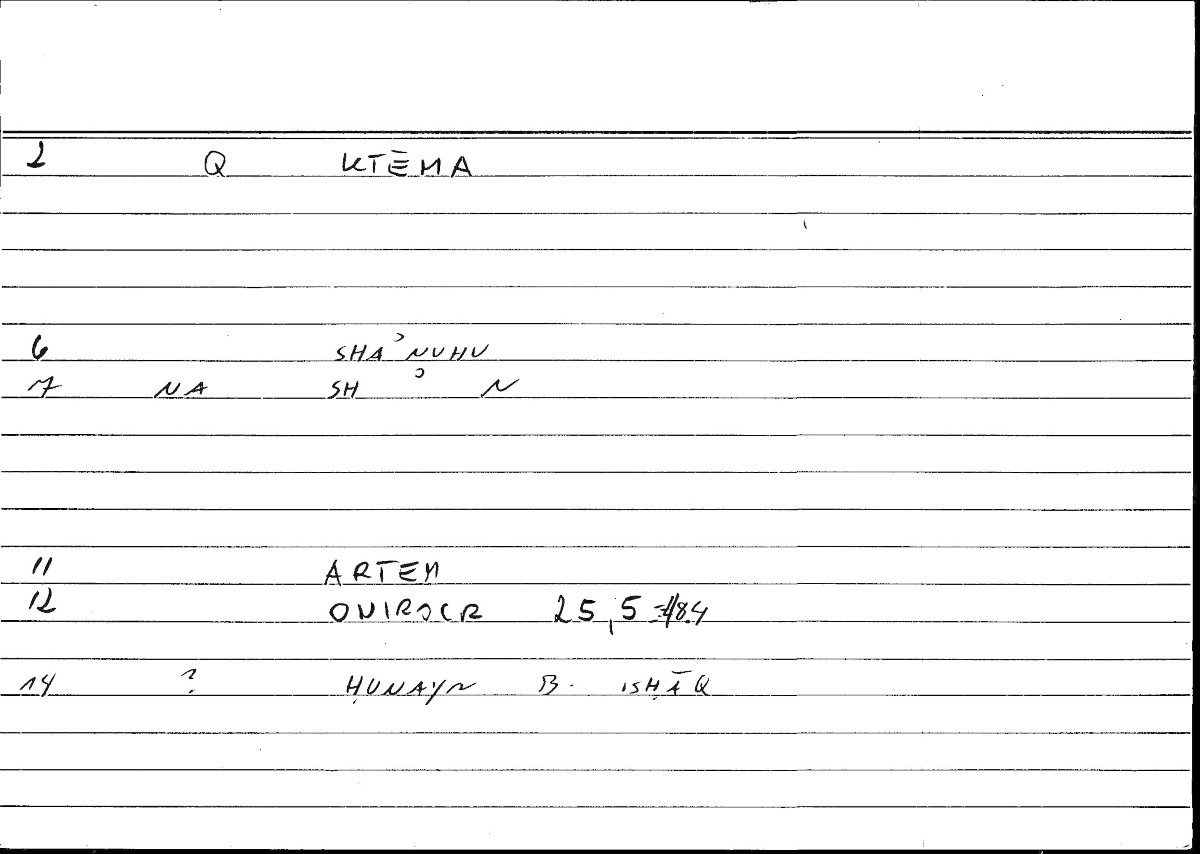 2 Q KTĒMA
6 SHAʾNUHU
7 NA SH ʾ N
11 ARTEM
12 ONIROCR 25,5 = 48.4
14 ? ḤUNAYN B. ISḤĀQ